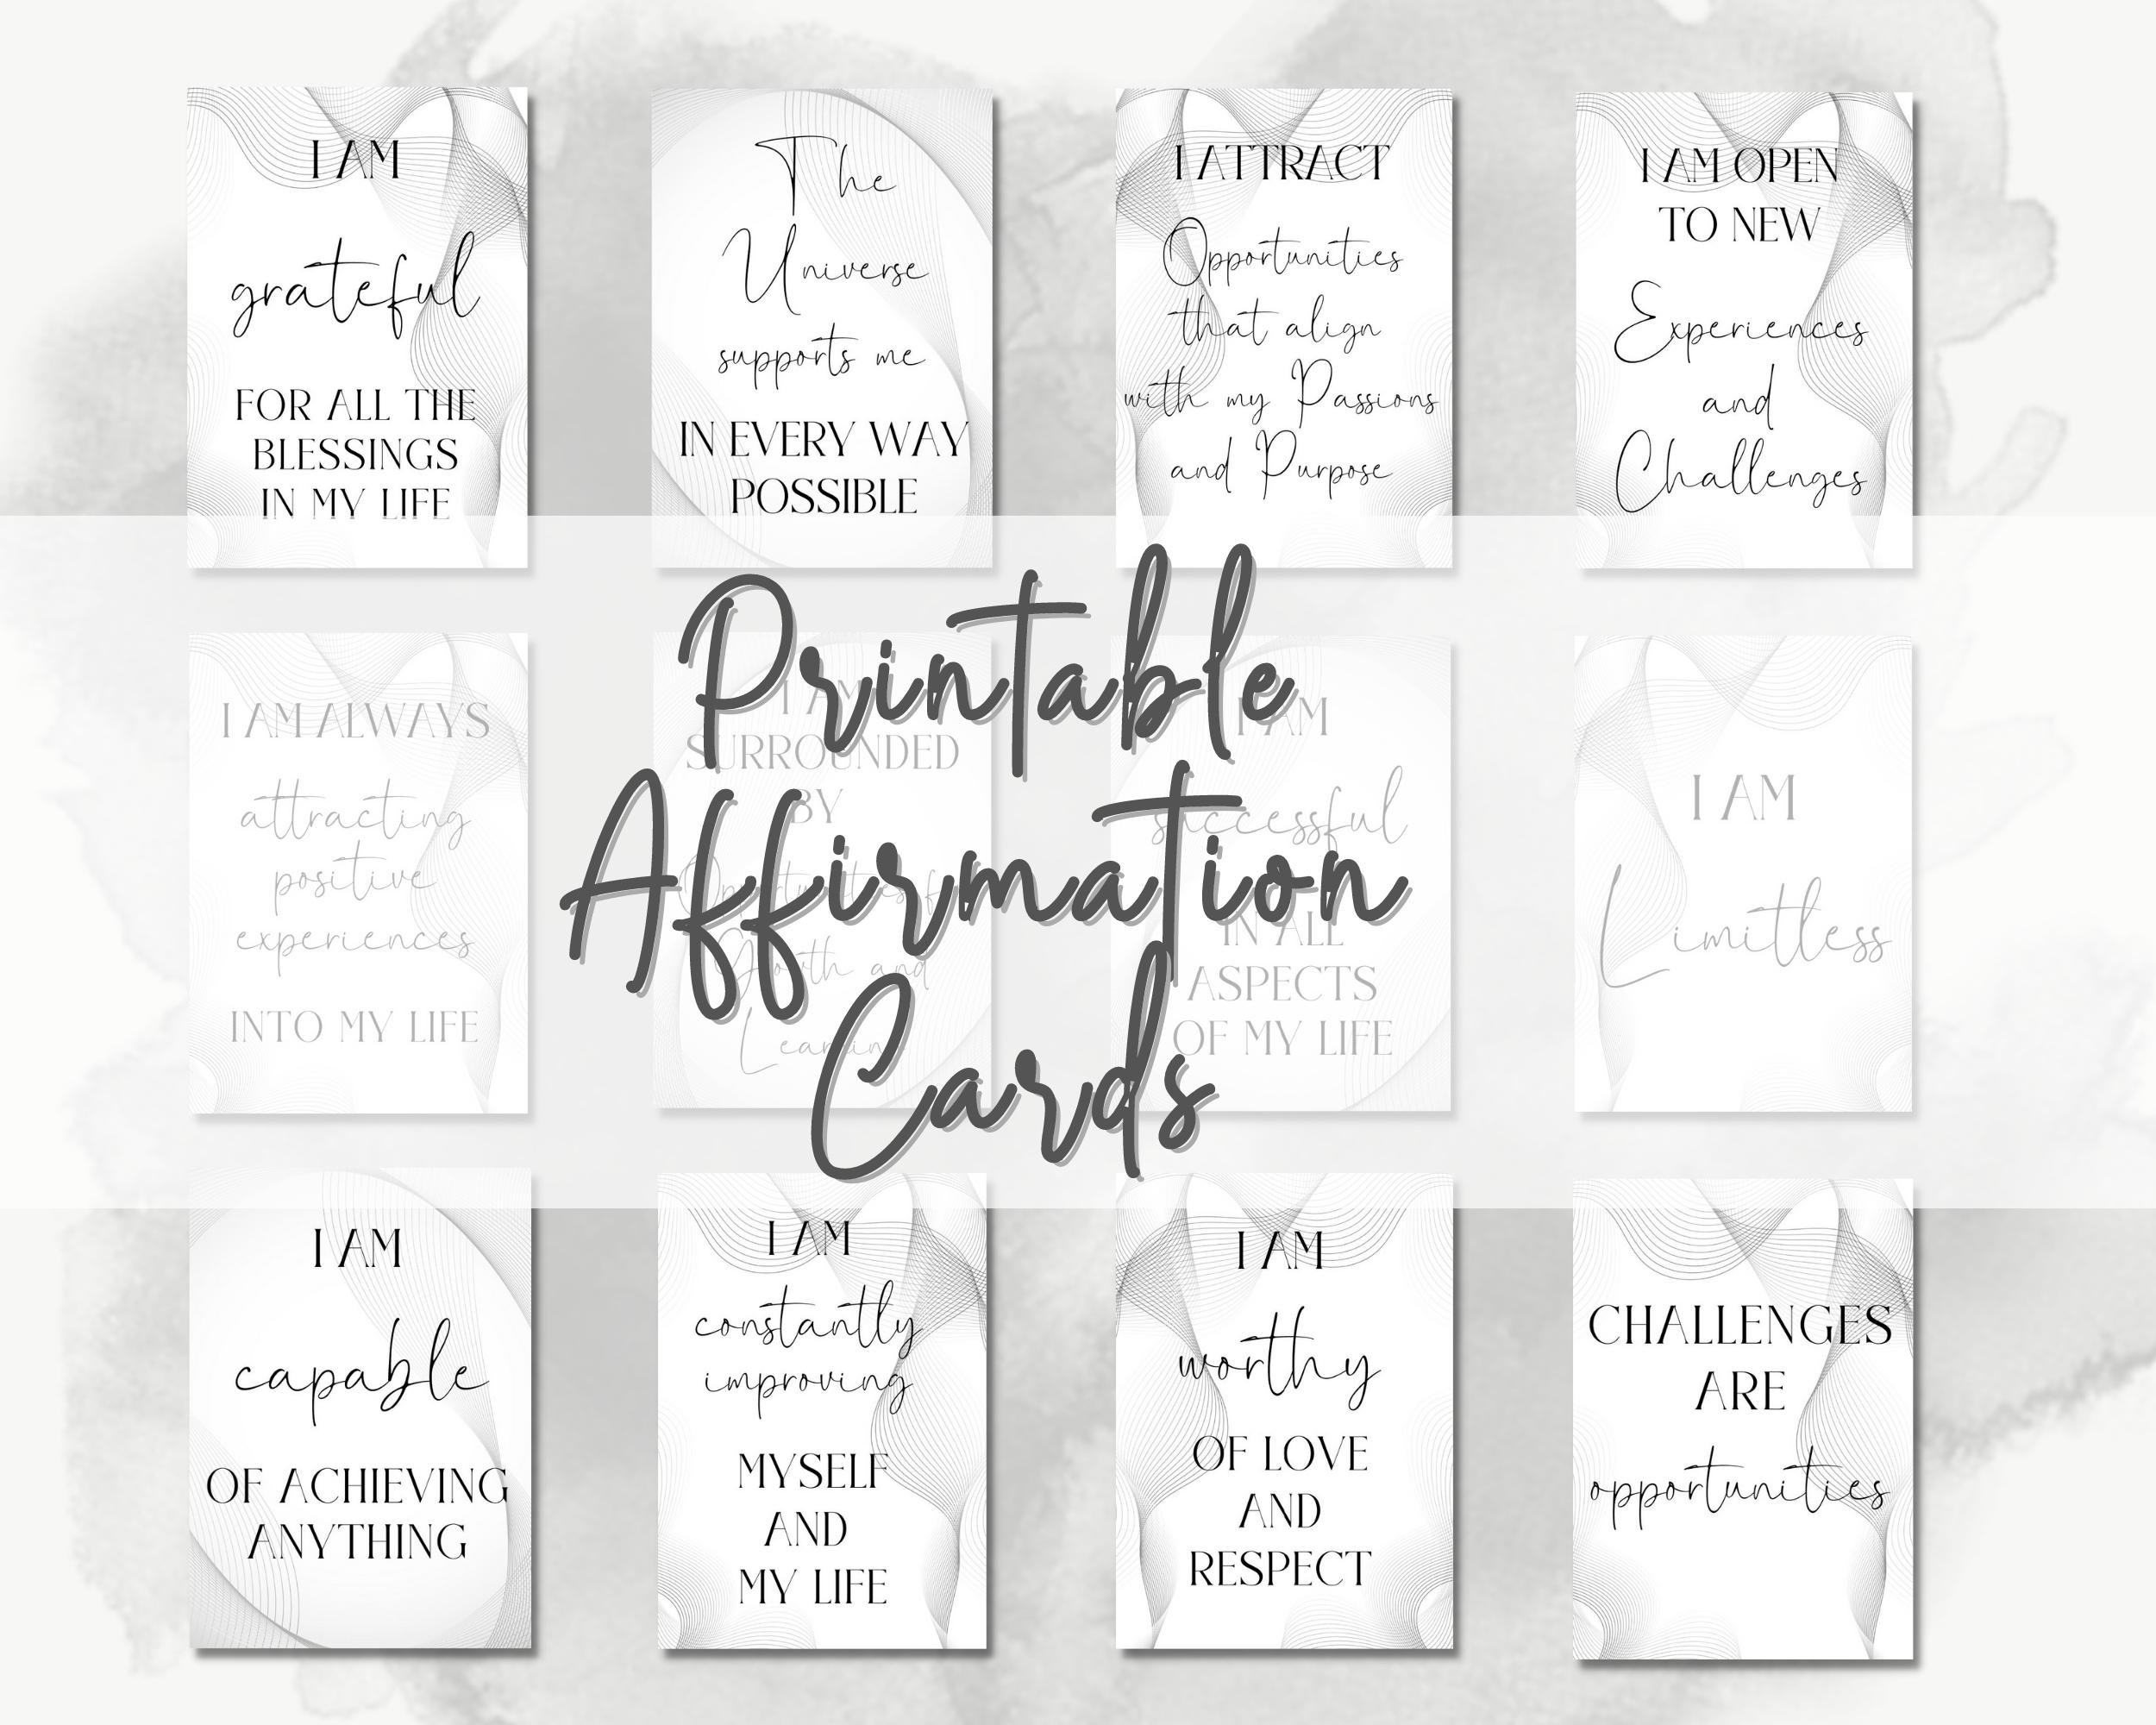 I AM
grateful
FOR ALL THE
BLESSINGS
IN MY LIFE
The
Universe
supports me
IN EVERY WAY
POSSIBLE
I ATTRACT
Opportunities
that align
with my Passions
and Purpose
I AM OPEN
TO NEW
Experiences
and
Challenges
Printable
Affirmation
Cards
I AM ALWAYS
attracting
positive
experiences
INTO MY LIFE
I AM
SURROUNDED
BY
Opportunities
Growth and
Learning
I AM
successful
IN ALL
ASPECTS
OF MY LIFE
I AM
Limitless
I AM
capable
OF ACHIEVING
ANYTHING
I AM
constantly
improving
MYSELF
AND
MY LIFE
I AM
worthy
OF LOVE
AND
RESPECT
CHALLENGES
ARE
opportunities